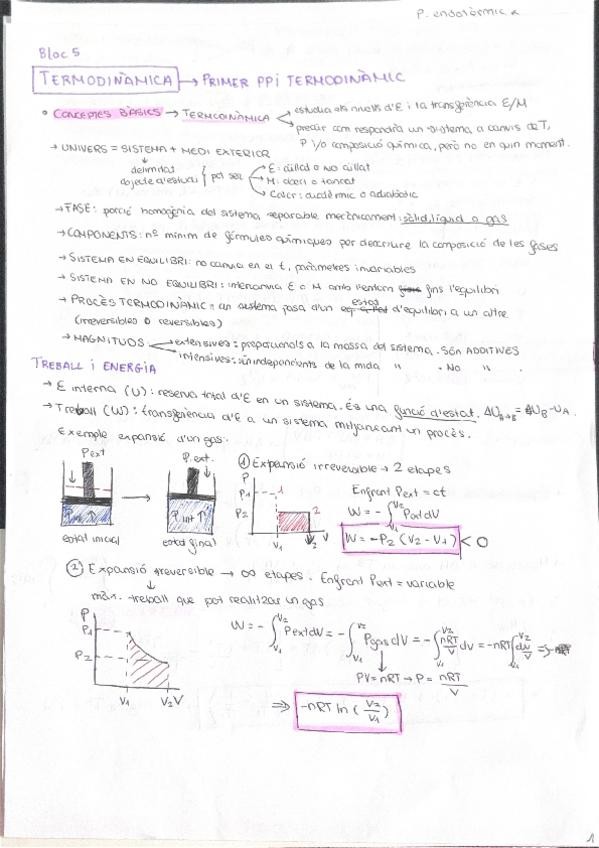 P. endotèrmic
Bloc 5
TERMODINÀMICA → PRIMER PPi TERMODINÀMIC
• CONCEPTES BÀSICS → TERMODINÀMICA
estudia els nivells d'E i la transferència E/M
predir com respondrà un sistema a canvis de T,
P i/o composició química, però no en quin moment.
→ UNIVERS = SISTEMA + MEDI EXTERIOR
delimitat
objecte d'estudi
pot ser
E: aïllat o NO aïllat
M: obert o tancat
Calor: o adiabàtic
→ FASE: porció homogènia del sistema separable mecànicament: sòlid, líquid o gas
→ COMPONENTS: nº mínim de fórmules químiques per descriure la composició de les fases
→ SISTEMA EN EQUILIBRI: no canvia en el t, paràmetres invariables
→ SISTEMA EN NO EQUILIBRI: intercanvia E o M amb l'entorn fins l'equilibri
→ PROCÉS TERMODINÀMIC: un sistema passa d'un estat d'equilibri a un altre
(irreversibles o reversibles)
→ MAGNITUDS:
extensives: proporcionals a la massa del sistema. SÓN ADDITIVES
intensives: són independents de la mida " . NO " .
TREBALL i ENERGIA
→ E interna (U): reserva total d'E en un sistema. És una funció d'estat. ΔU = U_B - U_A.
→ Treball (W): transferència d'E a un sistema mitjançant un procés.
Exemple expansió d'un gas.
Pext
P.ext
Pint ↑
Pint ↑
estat inicial
estat final
① Expansió irreversible → 2 etapes
P
P1
1
P2
2
V1
V2
V
Enfront Pext = ct
W = -∫_{V1}^{V2} Pext dV
W = -P2 (V2 - V1) < 0
② Expansió reversible → ∞ etapes. Enfront Pext = variable
màx. treball que pot realitzar un gas
P
P1
P2
V1
V2
V
W = -∫_{V1}^{V2} Pext dV = -∫_{V1}^{V2} Pgas dV = -∫_{V1}^{V2} nRT/V dV = -nRT ∫_{V1}^{V2} dV/V ⇒
PV = nRT → P = nRT/V
⇒ -nRT ln (V2/V1)
1